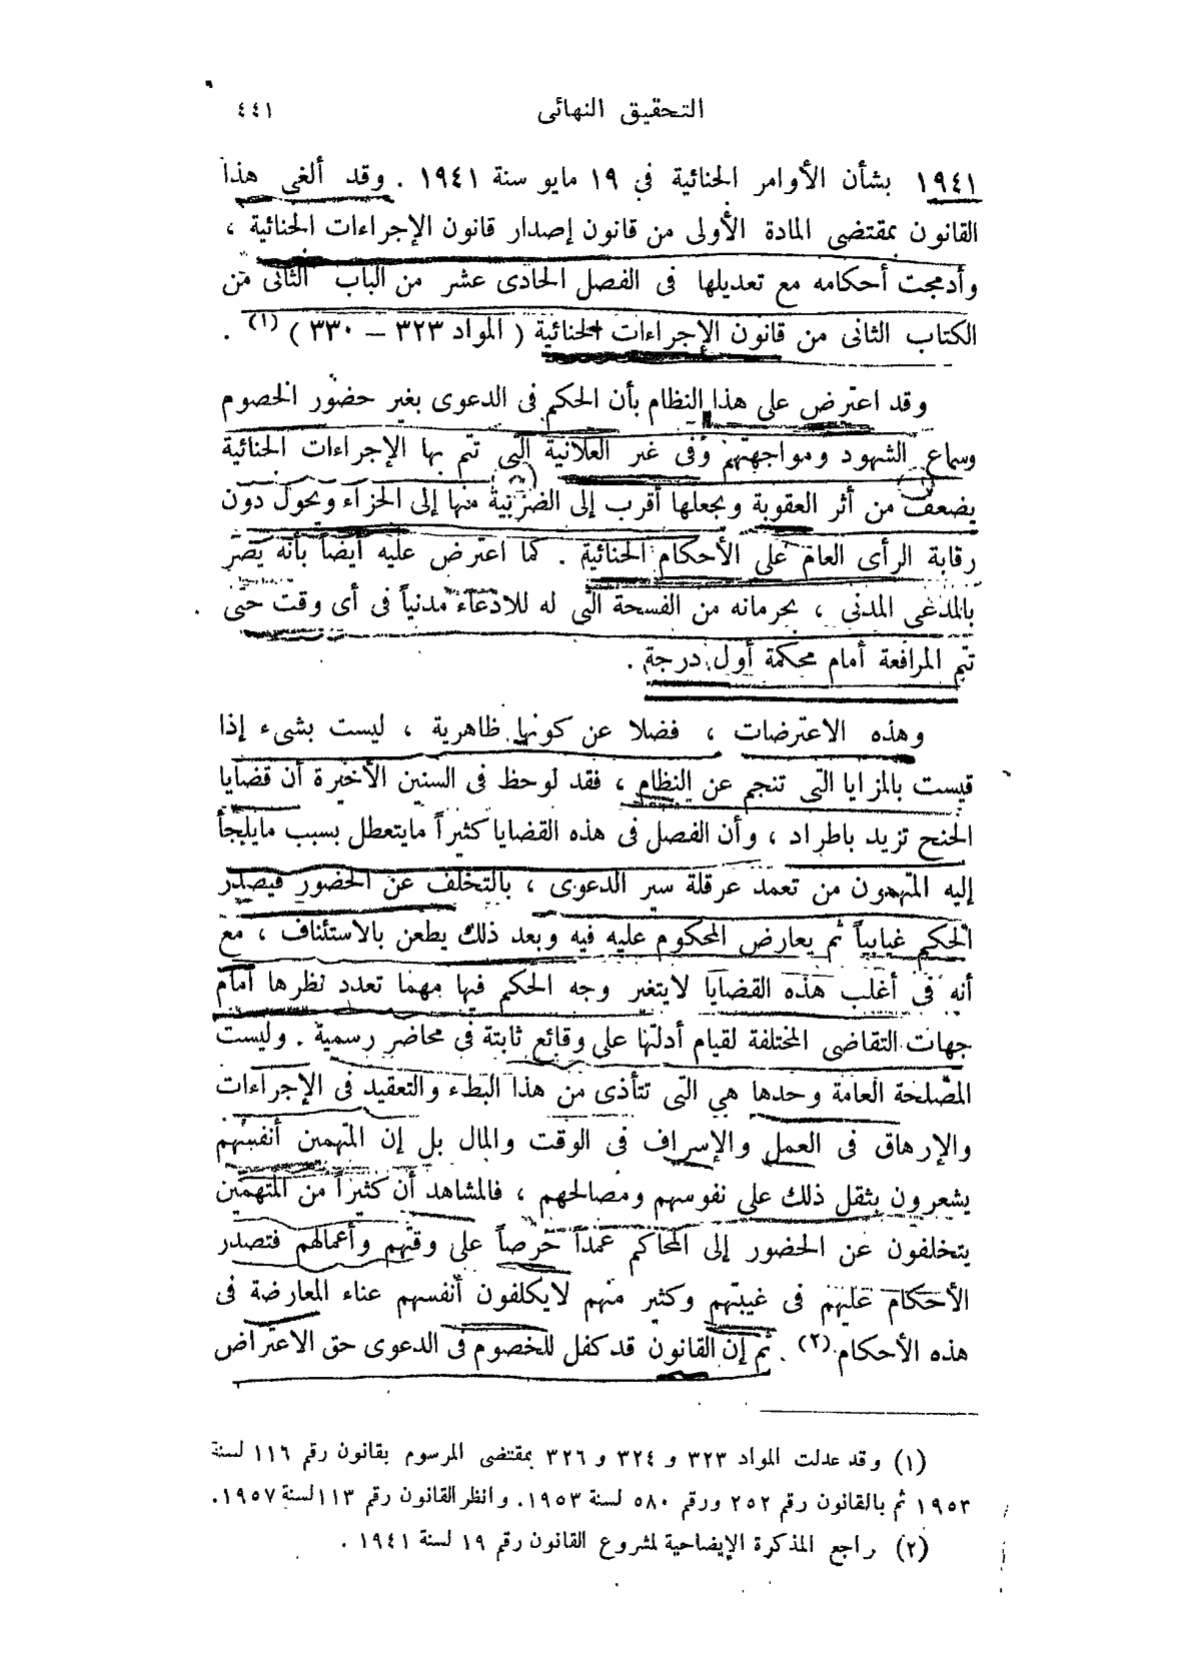 التحقيق النهائى ٤٤١
١٩٤١ بشأن الأوامر الجنائية في ١٩ مايو سنة ١٩٤١ . وقد ألغى هذا
القانون بمقتضى المادة الأولى من قانون إصدار قانون الإجراءات الجنائية ،
وأدمجت أحكامه مع تعديلها فى الفصل الحادى عشر من الباب الثانى من
الكتاب الثانى من قانون الإجراءات الجنائية ( المواد ٣٢٣ – ٣٣٠ ) (١) .
وقد اعترض على هذا النظام بأن الحكم فى الدعوى بغير حضور الخصوم
وسماع الشهود ومواجهتهم وفى غير العلانية التى تتم بها الإجراءات الجنائية
يضعف من أثر العقوبة ويجعلها أقرب إلى الضريبة منها إلى الجزاء ويحول دون
رقابة الرأى العام على الأحكام الجنائية . كما اعترض عليه أيضاً بأنه يضر
بالمدعى المدنى ، بحرمانه من الفسحة التى له للادعاء مدنياً فى أى وقت حتى
تتم المرافعة أمام محكمة أول درجة .
وهذه الاعترضات ، فضلا عن كونها ظاهرية ، ليست بشىء إذا
قيست بالمزايا التى تنجم عن النظام ، فقد لوحظ فى السنين الأخيرة أن قضايا
الجنح تزيد باطراد ، وأن الفصل فى هذه القضايا كثيراً مايتعطل بسبب مايلجأ
إليه المتهمون من تعمد عرقلة سير الدعوى ، بالتخلف عن الحضور فيصدر
الحكم غيابياً ثم يعارض المحكوم عليه فيه وبعد ذلك يطعن بالاستئناف ، مع
أنه فى أغلب هذه القضايا لايتغير وجه الحكم فيها مهما تعدد نظرها أمام
جهات التقاضى المختلفة لقيام أدلتها على وقائع ثابتة في محاضر رسمية . وليست
المصلحة العامة وحدها هي التى تتأذى من هذا البطء والتعقيد فى الإجراءات
والإرهاق فى العمل والإسراف فى الوقت والمال بل إن المتهمين أنفسهم
يشعرون بثقل ذلك على نفوسهم ومصالحهم ، فالمشاهد أن كثيراً من المتهمين
يتخلفون عن الحضور إلى المحاكم عمداً حرصاً على وقتهم وأعمالهم فتصدر
الأحكام عليهم فى غيبتهم وكثير منهم لايكلفون أنفسهم عناء المعارضة فى
هذه الأحكام (٢) . ثم إن القانون قد كفل للخصوم فى الدعوى حق الاعتراض
(١) وقد عدلت المواد ٣٢٣ و ٣٢٤ و ٣٢٦ بمقتضى المرسوم بقانون رقم ١١٦ لسنة
١٩٥٢ ثم بالقانون رقم ٢٥٢ ورقم ٥٨٠ لسنة ١٩٥٣. وانظر القانون رقم ١١٣ لسنة ١٩٥٧.
(٢) راجع المذكرة الإيضاحية لمشروع القانون رقم ١٩ لسنة ١٩٤١ .